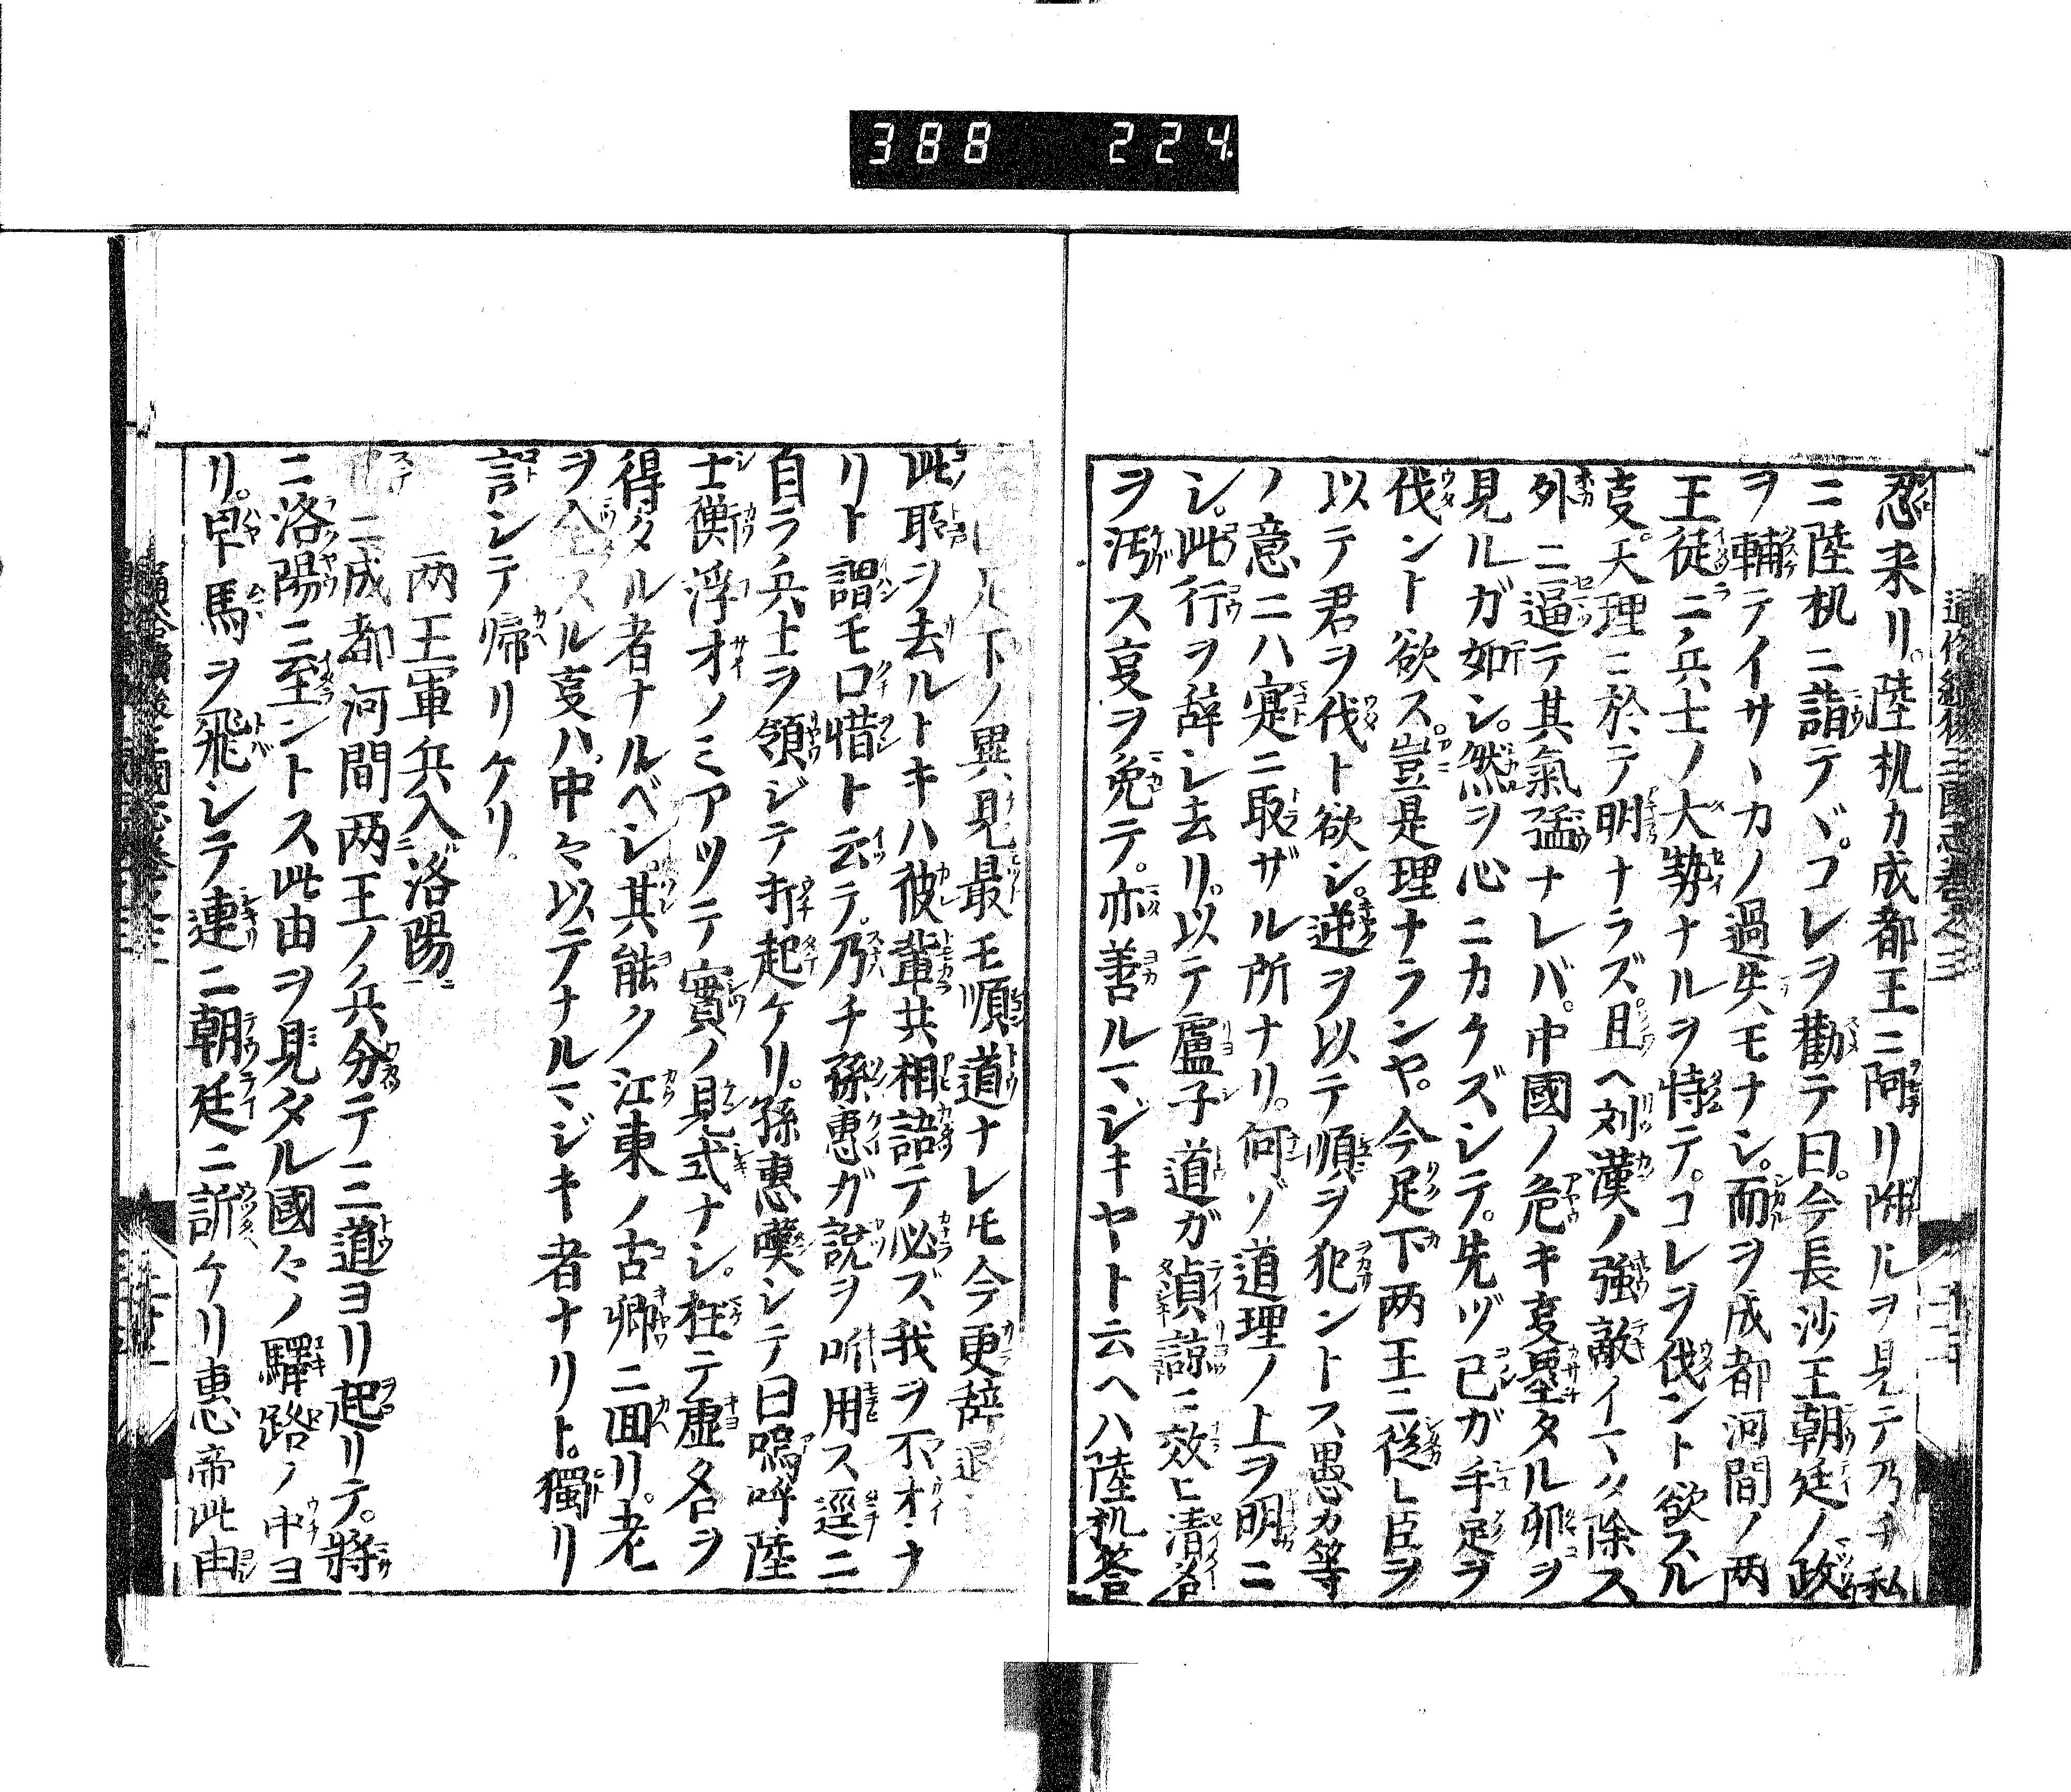 388 224
忍来リ。陸机カ成都王ニ阿リ附ルヲ見テ乃チ私
ニ陸机ニ詣テヾ。コレヲ勸テ曰。今長沙王朝廷ノ政
ヲ輔テイサヽカノ過失モナシ。而ヲ成都河間ノ両
王徒ニ兵士ノ大勢ナルヲ恃テ。コレヲ伐ント欲スル
㕝。天理ニ於テ明ナラズ。且ヘ刘漢ノ強敵イマタ除ス
外ニ逼テ其氣猛ナレバ。中國ノ危キ㕝壘タル卵ヲ
見ルガ如シ。然ヲ心ニカケズシテ。先ヅ已ガ手足ヲ
伐ント欲ス。豈是理ナランヤ。今足下両王ニ従レ臣ヲ
以テ君ヲ伐ト欲シ。逆ヲ以テ順ヲ犯ントス愚カ等
ノ意ニハ寔ニ取ザル所ナリ。何ゾ道理ノ上ヲ明ニ
シ。此行ヲ辞レ去リ。以テ盧子道ガ貞諒ニ效ヒ清名
ヲ汚ス㕝ヲ免テ。亦善ルマジキヤト云ヘハ陸机答
足下ノ異見最モ順道ナレ𪜈今更辞退
此耴ヲ去ルトキハ彼輩共相語テ必ズ我ヲ不オヽナ
リト謂モ口惜ト云テ。乃チ孫惠ガ說ヲ不用ス逕ニ
自ラノ兵士ヲ領ジテ打起ケリ。孫惠嘆シテ曰嗚呼陸
士衡浮才ノミアツテ實ノ見式ナシ。枉テ虚名ヲ
得タル者ナルベシ。其能ク江東ノ古卿ニ囬リ。老
ヲ全スル㕝ハ。中々以テナルマジキ者ナリト。獨リ
言シテ帰リケリ。
両王軍兵入洛陽
ニ成都河間両王ノ兵分テ三道ヨリ起リテ。將
ニ洛陽ニ至ントス此由ヲ見タル國々ノ驛路ノ中ヨ
リ。早馬ヲ飛シテ連ニ朝廷ニ訴ケリ惠帝此由